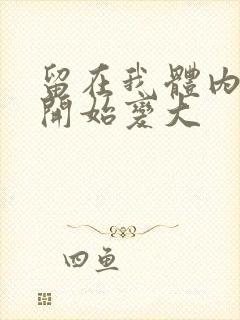 留在我體內
開始變大
四魚